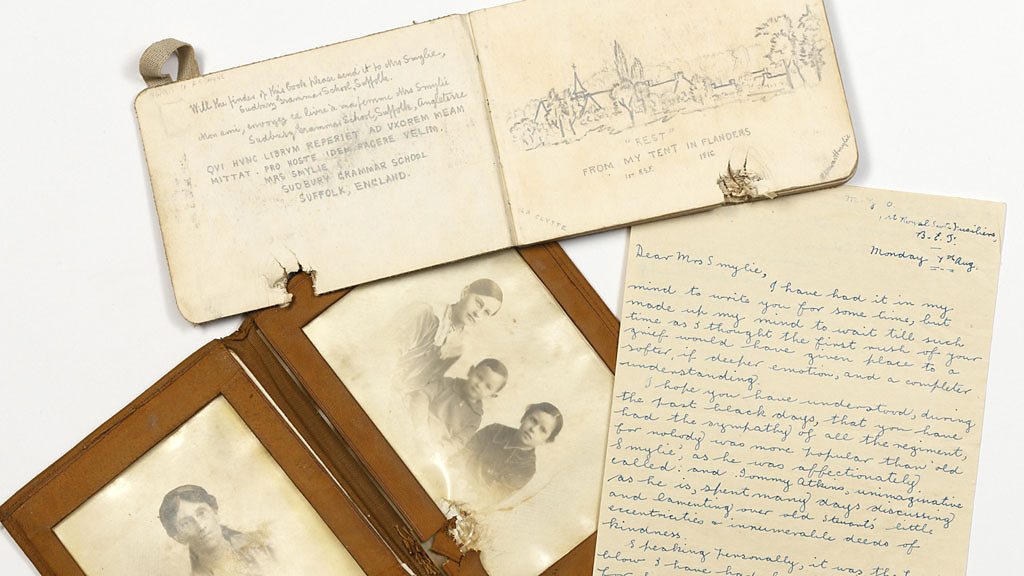 Will the finder of this book please send it to Mrs Smylie,
Sudbury Grammar School, Suffolk.
Mon ami, envoyez ce livre à ma femme Mrs Smylie
Sudbury Grammar School, Suffolk, Angleterre
QUI HVNC LIBRVM REPERIET AD VXOREM MEAM
MITTAT. PRO HOSTE IDEM FACERE VELIM.
MRS SMYLIE
SUDBURY GRAMMAR SCHOOL
SUFFOLK, ENGLAND.
"REST"
FROM MY TENT IN FLANDERS
1916
1ST R.S.F.
LA CLYTTE
1st Royal Scots Fusiliers,
B.E.F.
Monday 7th Aug.
Dear Mrs Smylie,
I have had it in my
mind to write you for some time, but
made up my mind to wait till such
time as I thought the first rush of your
grief would have given place to a
softer, if deeper emotion, and a completer
understanding.
I hope you have understood, during
the past black days, that you have
had the sympathy of all the regiment,
for nobody was more popular than 'old
Smylie', as he was affectionately
called: and Tommy Atkins, unimaginative
as he is, spent many days discussing
and lamenting over old Stuart's little
eccentricities & innumerable deeds of
kindness.
Speaking personally, it was the
blow I have had